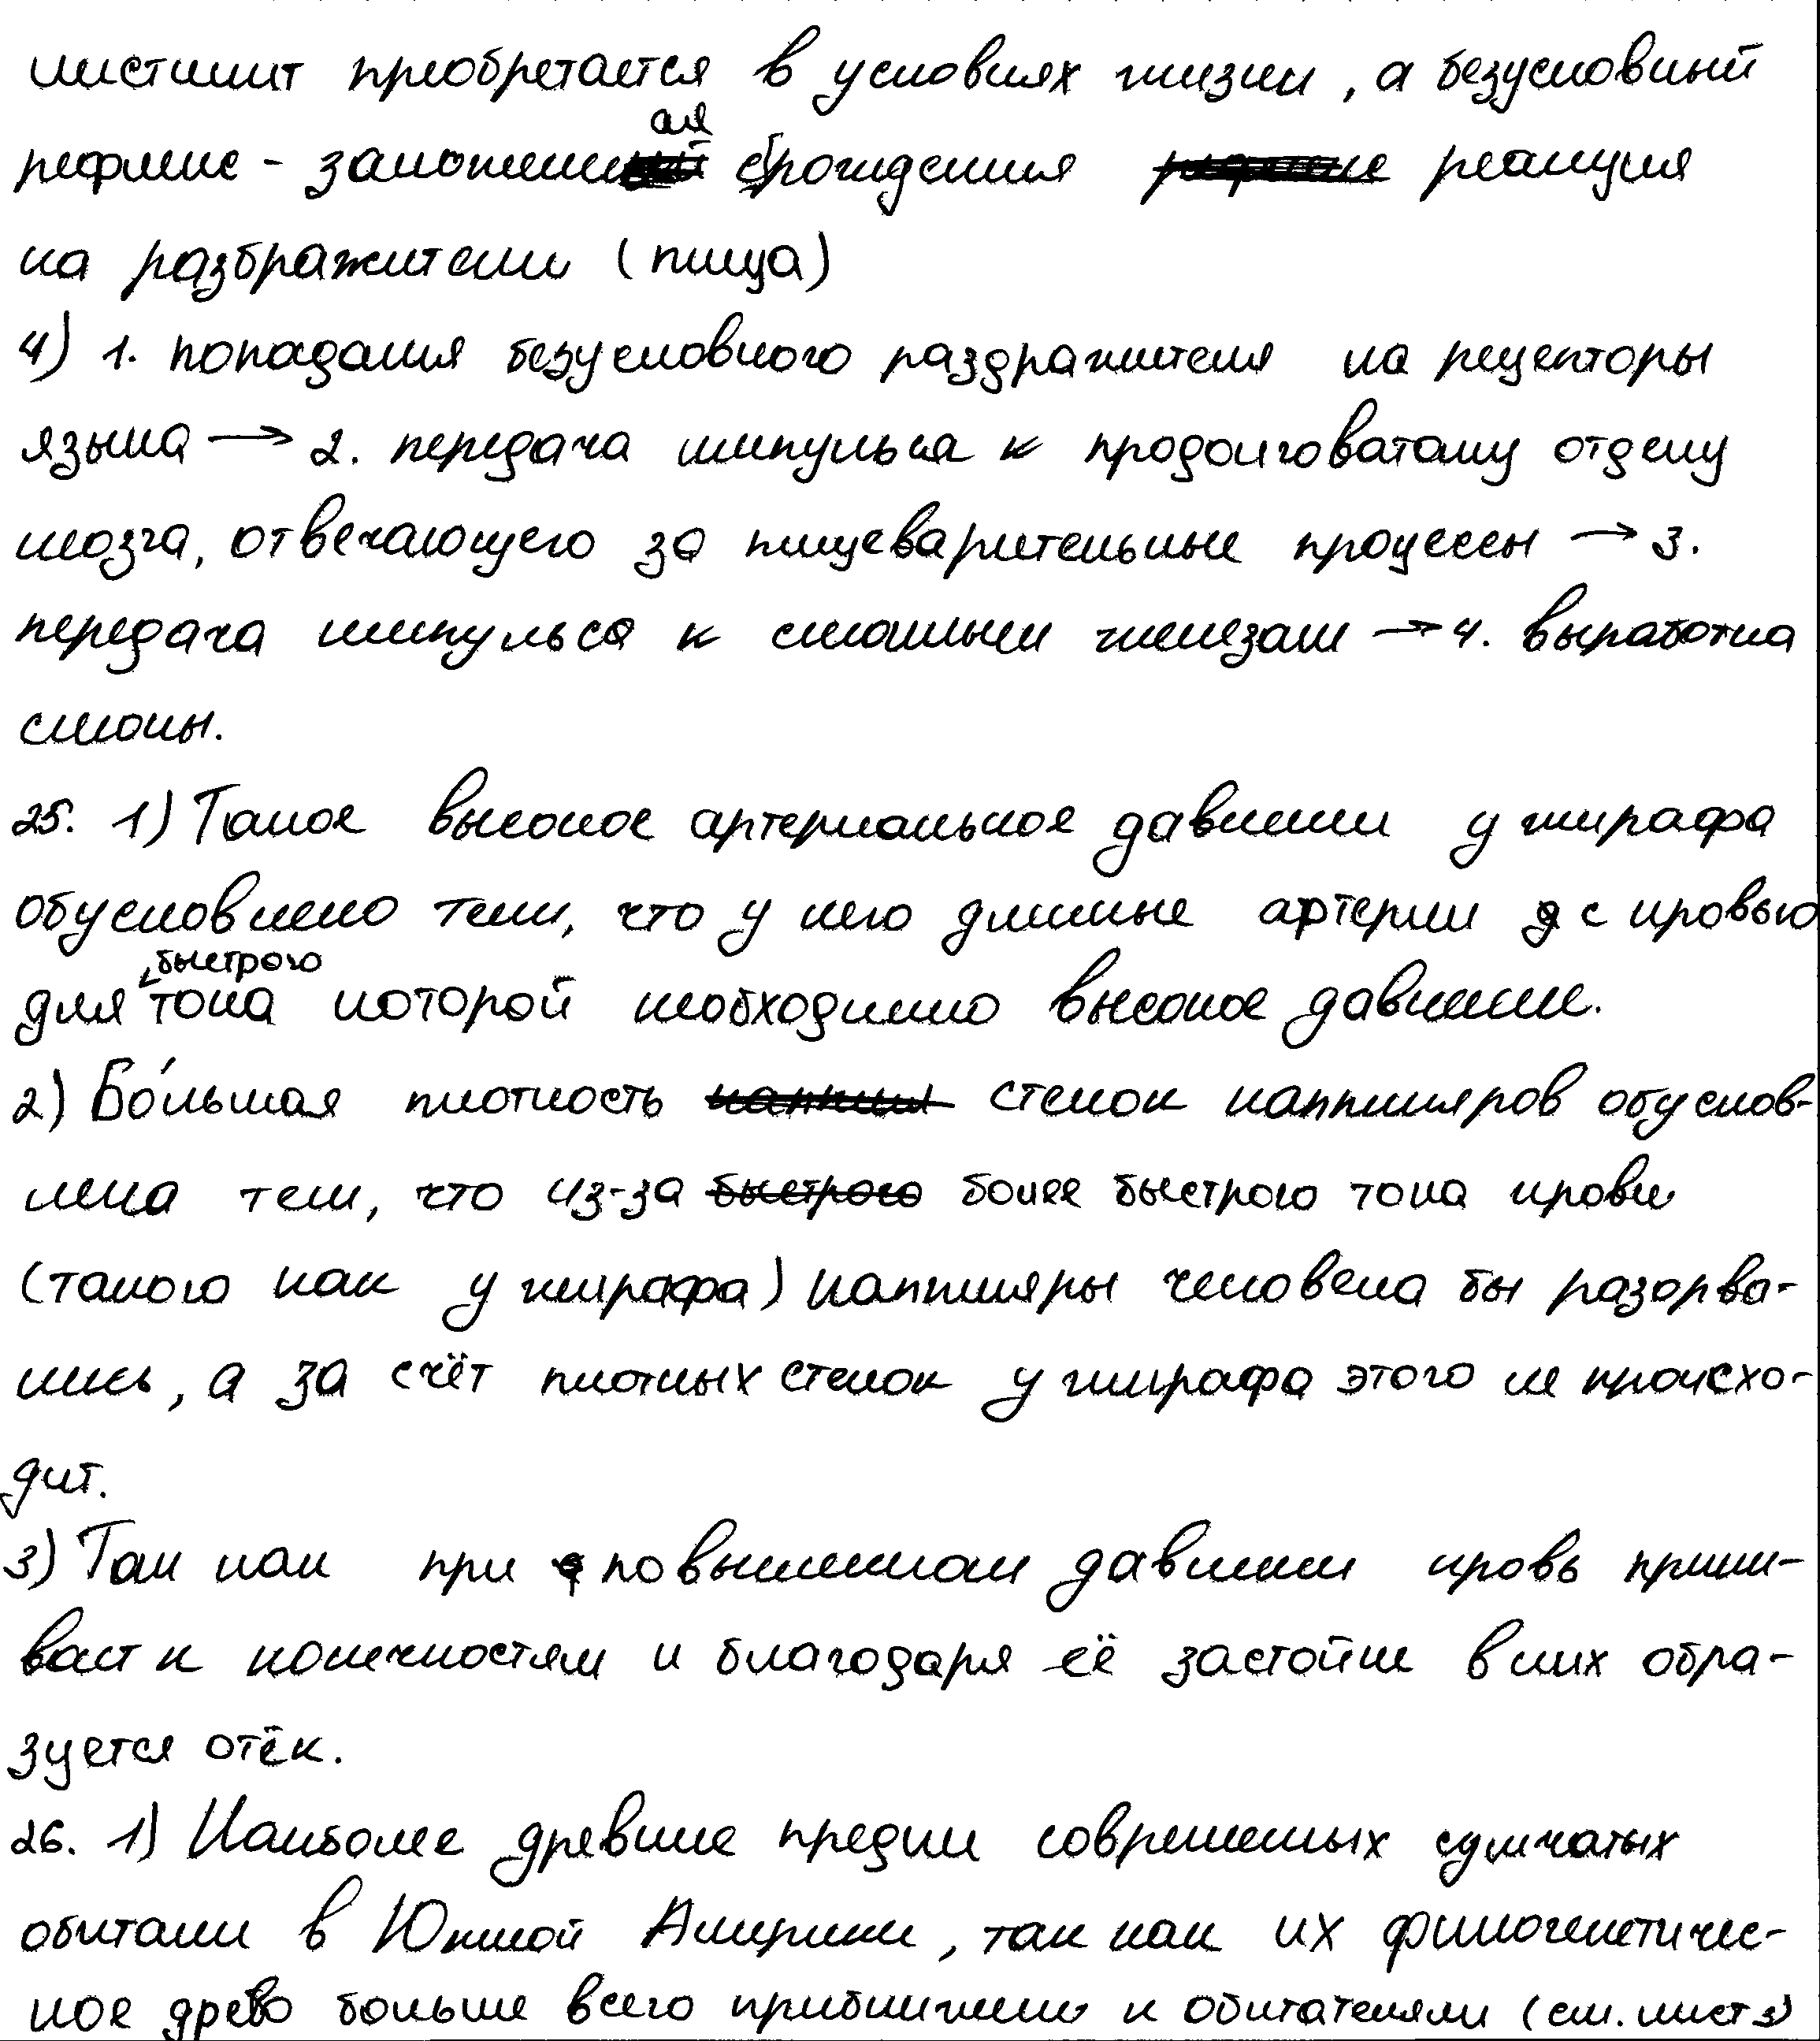 инстинкт приобретается в условиях жизни, а безусловный
рефлекс - заложенная с рождения реакция
на раздражители (пища)
4) 1. попадания безусловного раздражителя на рецепторы
языка → 2. передача импульса к продолговатому отделу
мозга, отвечающего за пищеварительные процессы → 3.
передача импульса к слюнным железам → 4. выработка
слюны.
25. 1) Такое высокое артериальное давлении у жирафа
обусловлено тем, что у него длинные артерии с кровью
для быстрого тока которой необходимо высокое давление.
2) Бо́льшая плотность стенок каппиляров обуслов-
лена тем, что из-за более быстрого тока крови
(такого как у жирафа) каппиляры человека бы разорва-
лись, а за счёт плотных стенок у жирафа этого не происхо-
дит.
3) Так как при повышенном давлении кровь прили-
вает к конечностям и благодаря её застойне в них обра-
зуется отёк.
26. 1) Наиболее древние предки современных сумчатых
обитали в Южной Америки, так как их филогенетичес-
кое древо больше всего приближено к обитателям (см. лист 3)